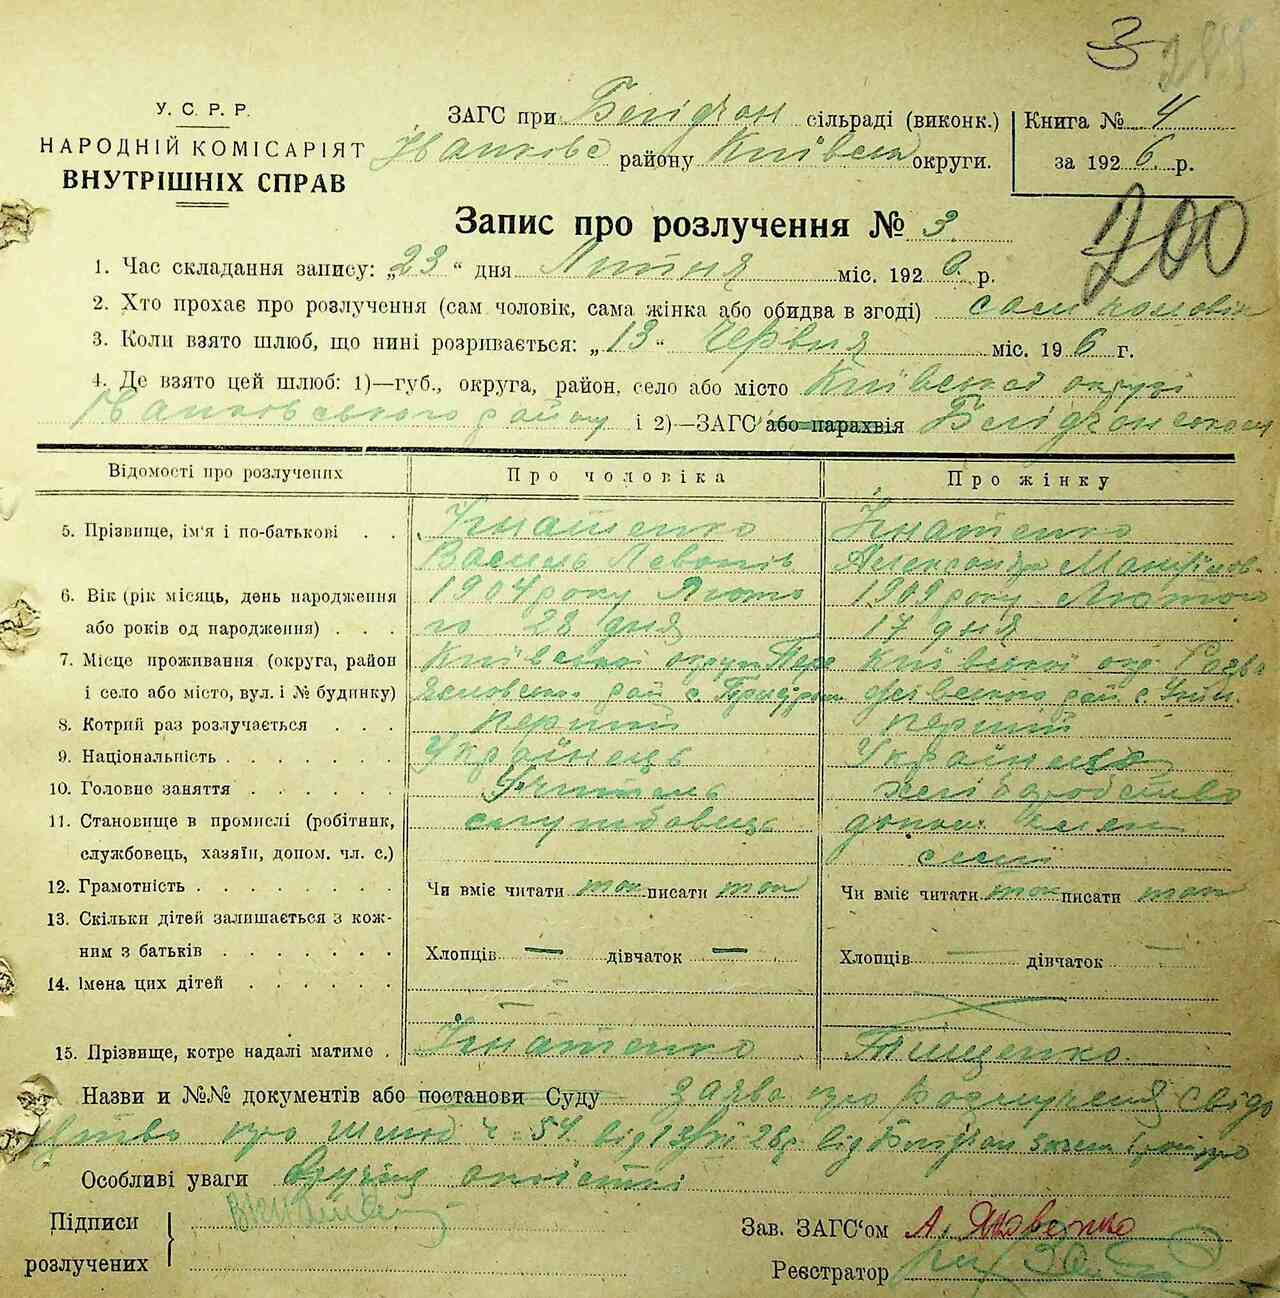 3
У. С. Р. Р.
НАРОДНІЙ КОМІСАРІЯТ
ВНУТРІШНІХ СПРАВ
ЗАГС при сільраді (виконк.)
району Київськ округи.
Книга № 4
за 1926 р.
200
Запис про розлучення № 3.
1. Час складання запису: „23“ дня Липня міс. 1926 р.
2. Хто прохає про розлучення (сам чоловік, сама жінка або обидва в згоді) сам чоловік
3. Коли взято шлюб, що нині розривається: „13“ Червня міс. 19 6 г.
4. Де взято цей шлюб: 1)—губ., округа, район, село або місто Київської округи
району і 2)—ЗАГС або парахвія
Відомості про розлучених
Про чоловіка
Про жінку
5. Прізвище, ім'я і по-батькові . .
Ігнатенко
Василь Левонів
Ігнатенко
Александра
6. Вік (рік місяць, день народження
або років од народження) . . .
1904 року Лютого
28 дня
1909 року Лютого
17 дня
7. Місце проживання (округа, район
і село або місто, вул. і № будинку)
Київської округи
рай с.
Київської окр.
рай с.
8. Котрий раз розлучається . . .
перший
перший
9. Національність . . . . . . .
Українець
Українець
10. Головно заняття . . . . . .
Учитель
хліборобство
11. Становище в промислі (робітник,
службовець, хазяїн, допом. чл. с.)
службовець
допом. член
семї
12. Грамотність . . . . . . . .
Чи вміє читати так писати так
Чи вміє читати так писати так
13. Скільки дітей залишається з кож-
ним з батьків . . . . . . .
Хлопців — дівчаток —
Хлопців — дівчаток —
14. Імена цих дітей . . . . . .
15. Прізвище, котре надалі матиме .
Ігнатенко
Тищенко.
Назви и №№ документів або постанови Суду заява про розлучення свідо
цтво про шлюб ч = 54 від від
Особливі уваги
Підписи
розлучених
Зав. ЗАГС‘ом А. Яковенко
Реєстратор